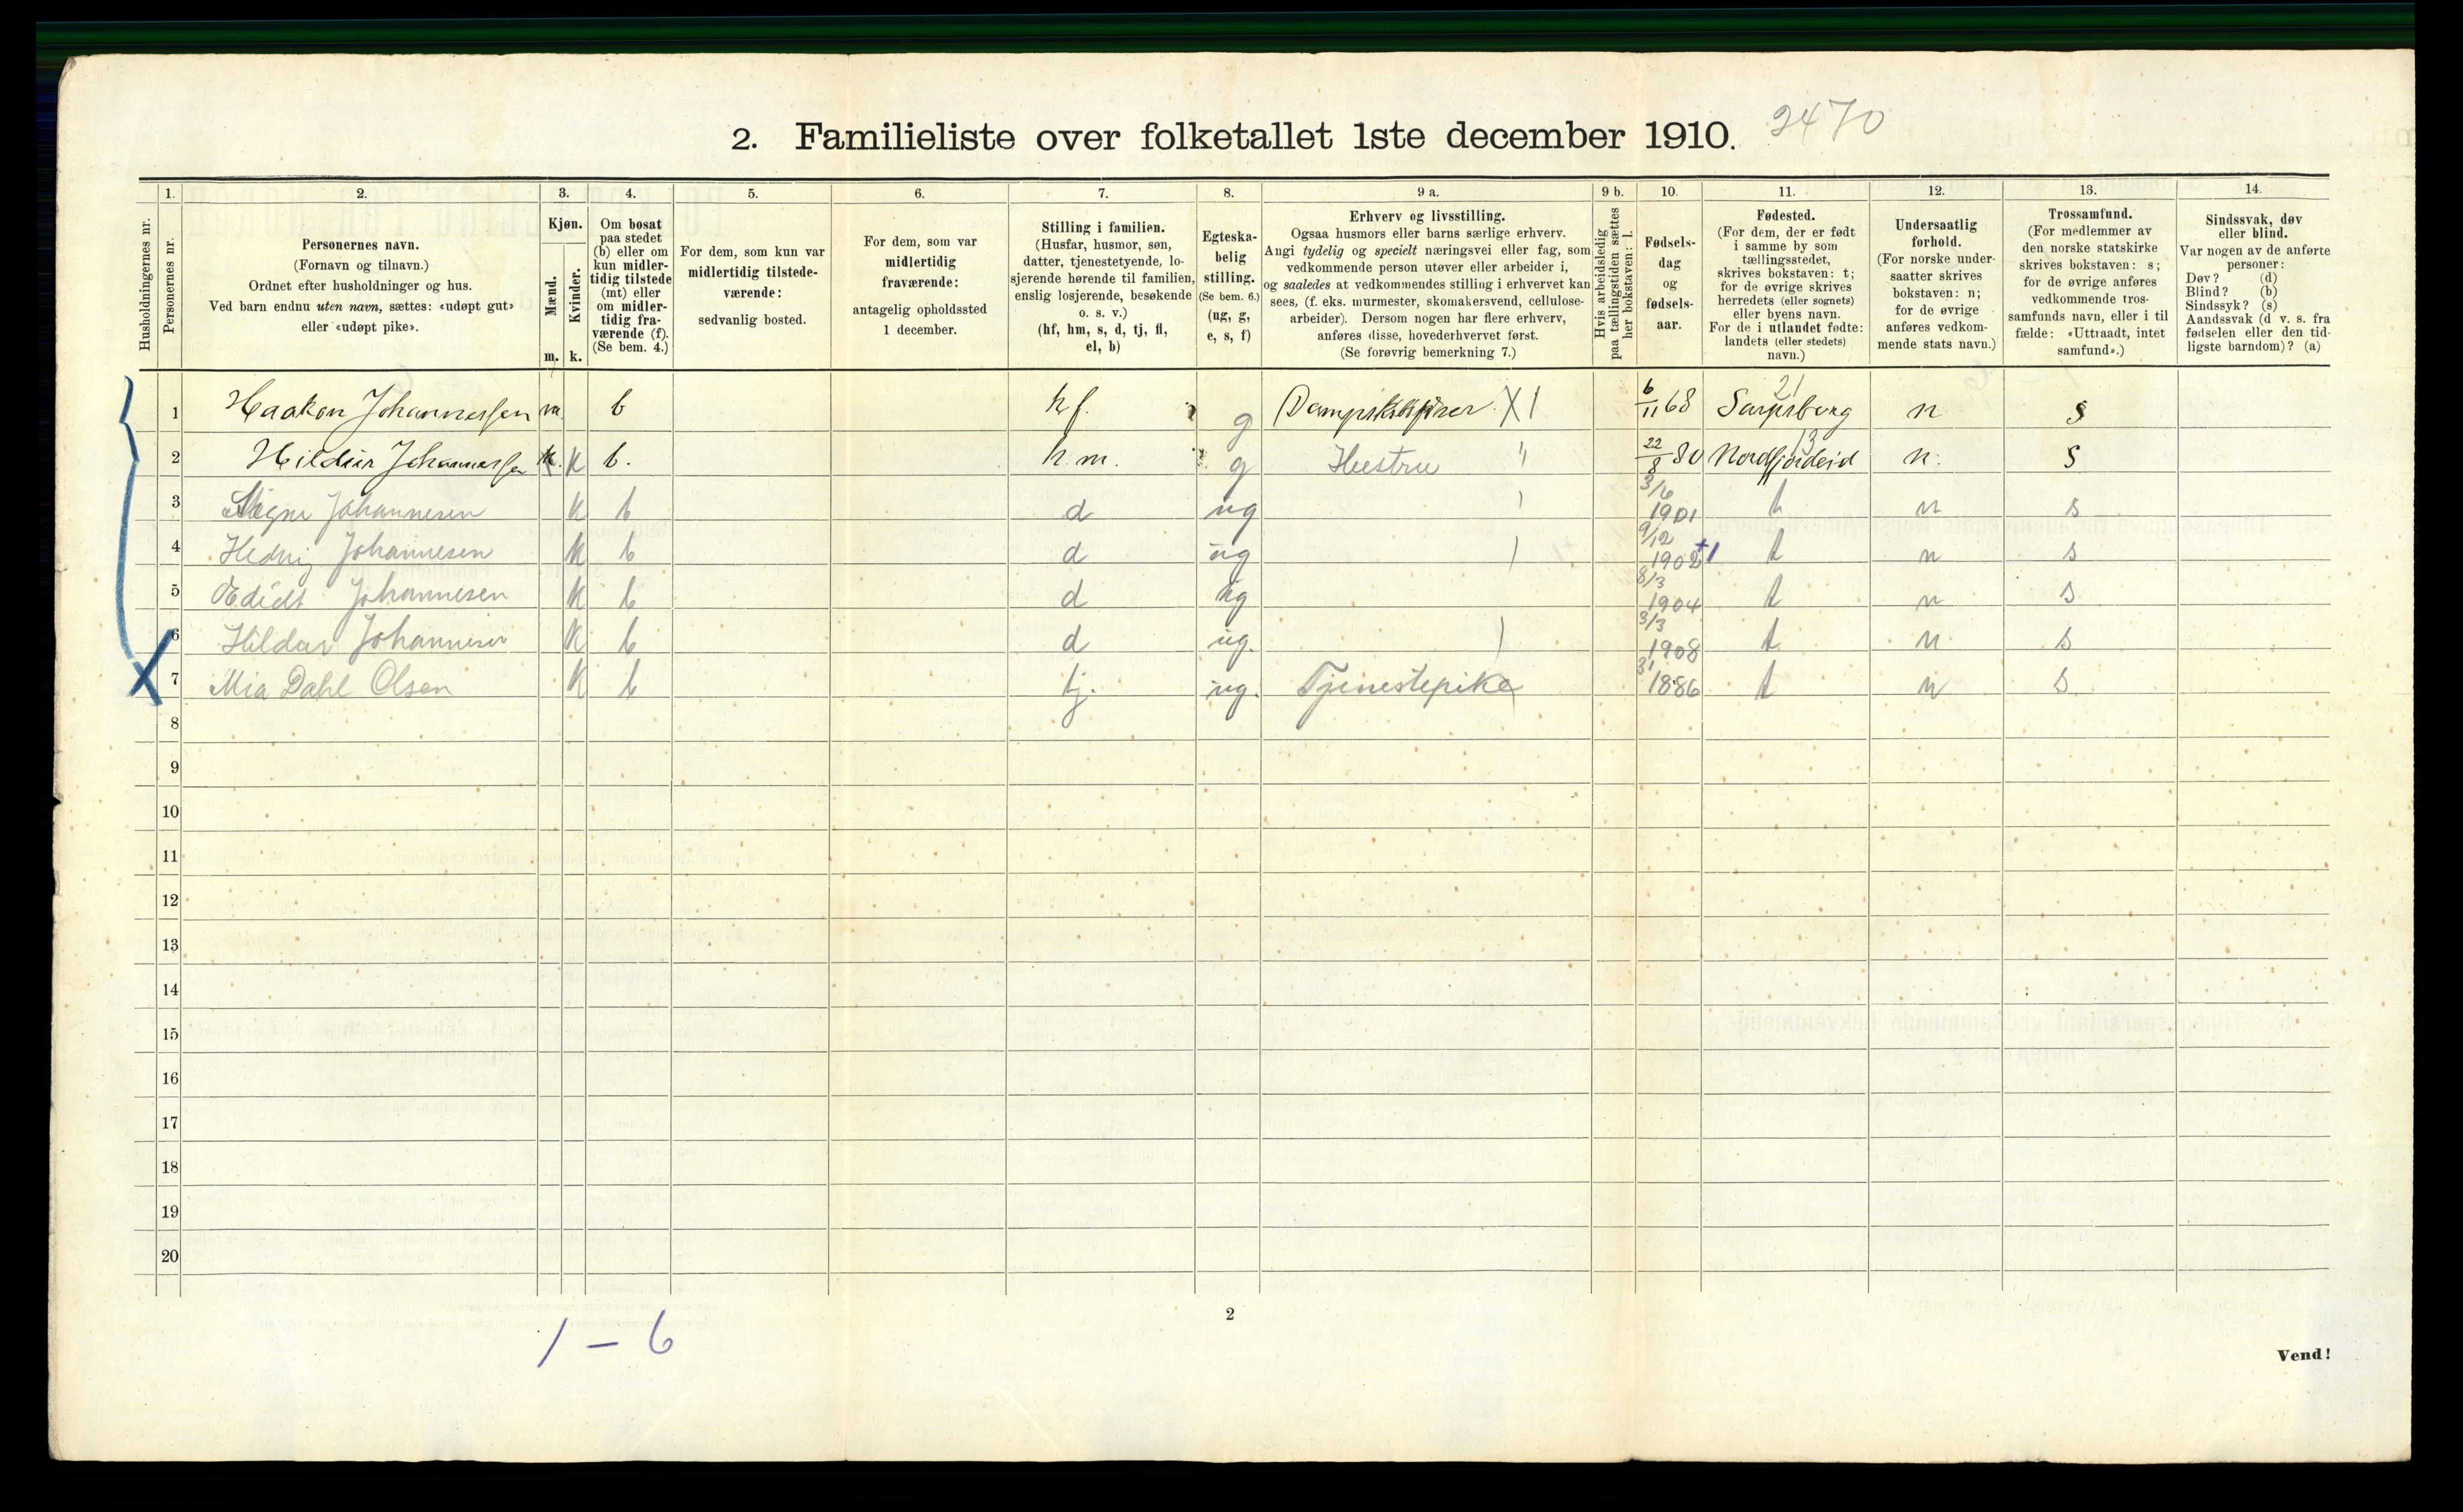 2. Familieliste over folketallet 1ste december 1910. 2470
Husholdningernes nr.
1.
Personernes nr.
2.
Personernes navn.
(Fornavn og tilnavn.)
Ordnet efter husholdninger og hus.
Ved barn endnu uten navn, sættes: «udøpt gut»
eller «udøpt pike».
3.
Kjøn.
Mænd.
Kvinder.
m. k.
4.
Om bosat
paa stedet
(b) eller om
kun midler-
tidig tilstede
(mt) eller
om midler-
tidig fra-
værende (f).
(Se bem. 4.)
5.
For dem, som kun var
midlertidig tilstede-
værende:
sedvanlig bosted.
6.
For dem, som var
midlertidig
fraværende:
antagelig opholdssted
1 december.
7.
Stilling i familien.
(Husfar, husmor, søn,
datter, tjenestetyende, lo-
sjerende hørende til familien,
enslig losjerende, besøkende
o. s. v.)
(hf, hm, s, d, tj, fl,
el, b)
8.
Egteska-
belig
stilling.
(Se bem. 6.)
(ug, g,
e, s, f)
9 a.
Erhverv og livsstilling.
Ogsaa husmors eller barns særlige erhverv.
Angi tydelig og specielt næringsvei eller fag, som
vedkommende person utøver eller arbeider i,
og saaledes at vedkommendes stilling i erhvervet kan
sees, (f. eks. murmester, skomakersvend, cellulose-
arbeider). Dersom nogen har flere erhverv,
anføres disse, hovederhvervet først.
(Se forøvrig bemerkning 7.)
9 b.
Hvis arbeidsledig
paa tællingstiden sættes
her bokstaven: l.
10.
Fødsels-
dag
og
fødsels-
aar.
11.
Fødested.
(For dem, der er født
i samme by som
tællingsstedet,
skrives bokstaven: t;
for de øvrige skrives
herredets (eller sognets)
eller byens navn.
For de i utlandet fødte:
landets (eller stedets)
navn.)
12.
Undersaatlig
forhold.
(For norske under-
saatter skrives
bokstaven: n;
for de øvrige
anføres vedkom-
mende stats navn.)
13.
Trossamfund.
(For medlemmer av
den norske statskirke
skrives bokstaven: s;
for de øvrige anføres
vedkommende tros-
samfunds navn, eller i til
fælde: «Uttraadt, intet
samfund».)
14.
Sindssvak, døv
eller blind.
Var nogen av de anførte
personer:
Døv? (d)
Blind? (b)
Sindssyk? (s)
Aandssvak (d v. s. fra
fødselen eller den tid-
ligste barndom)? (a)
1 Haakon Johannessen m. b h f. g X 1 6/11 68 Sarpsborg 21 n s
2 Hildur Johannessen K b. h. m. g Hustru " 22/8 80 Nordfjordeid 13 n. s
3 Signe Johannesen K b d ug 3/6 1901 t n s
4 Hedvig Johannesen K b d ug 9/12 1902 +1 t n s
5 Edidt Johannesen K b d ug 8/3 1904 t n s
6 Hildur Johannesen K b d ug. 3/3 1908 t n s
7 Mia Dahl Olsen K b tj. ug. Tjenestepike 1886 t n s
8
9
10
11
12
13
14
15
16
17
18
19
20
1 - 6
2
Vend!